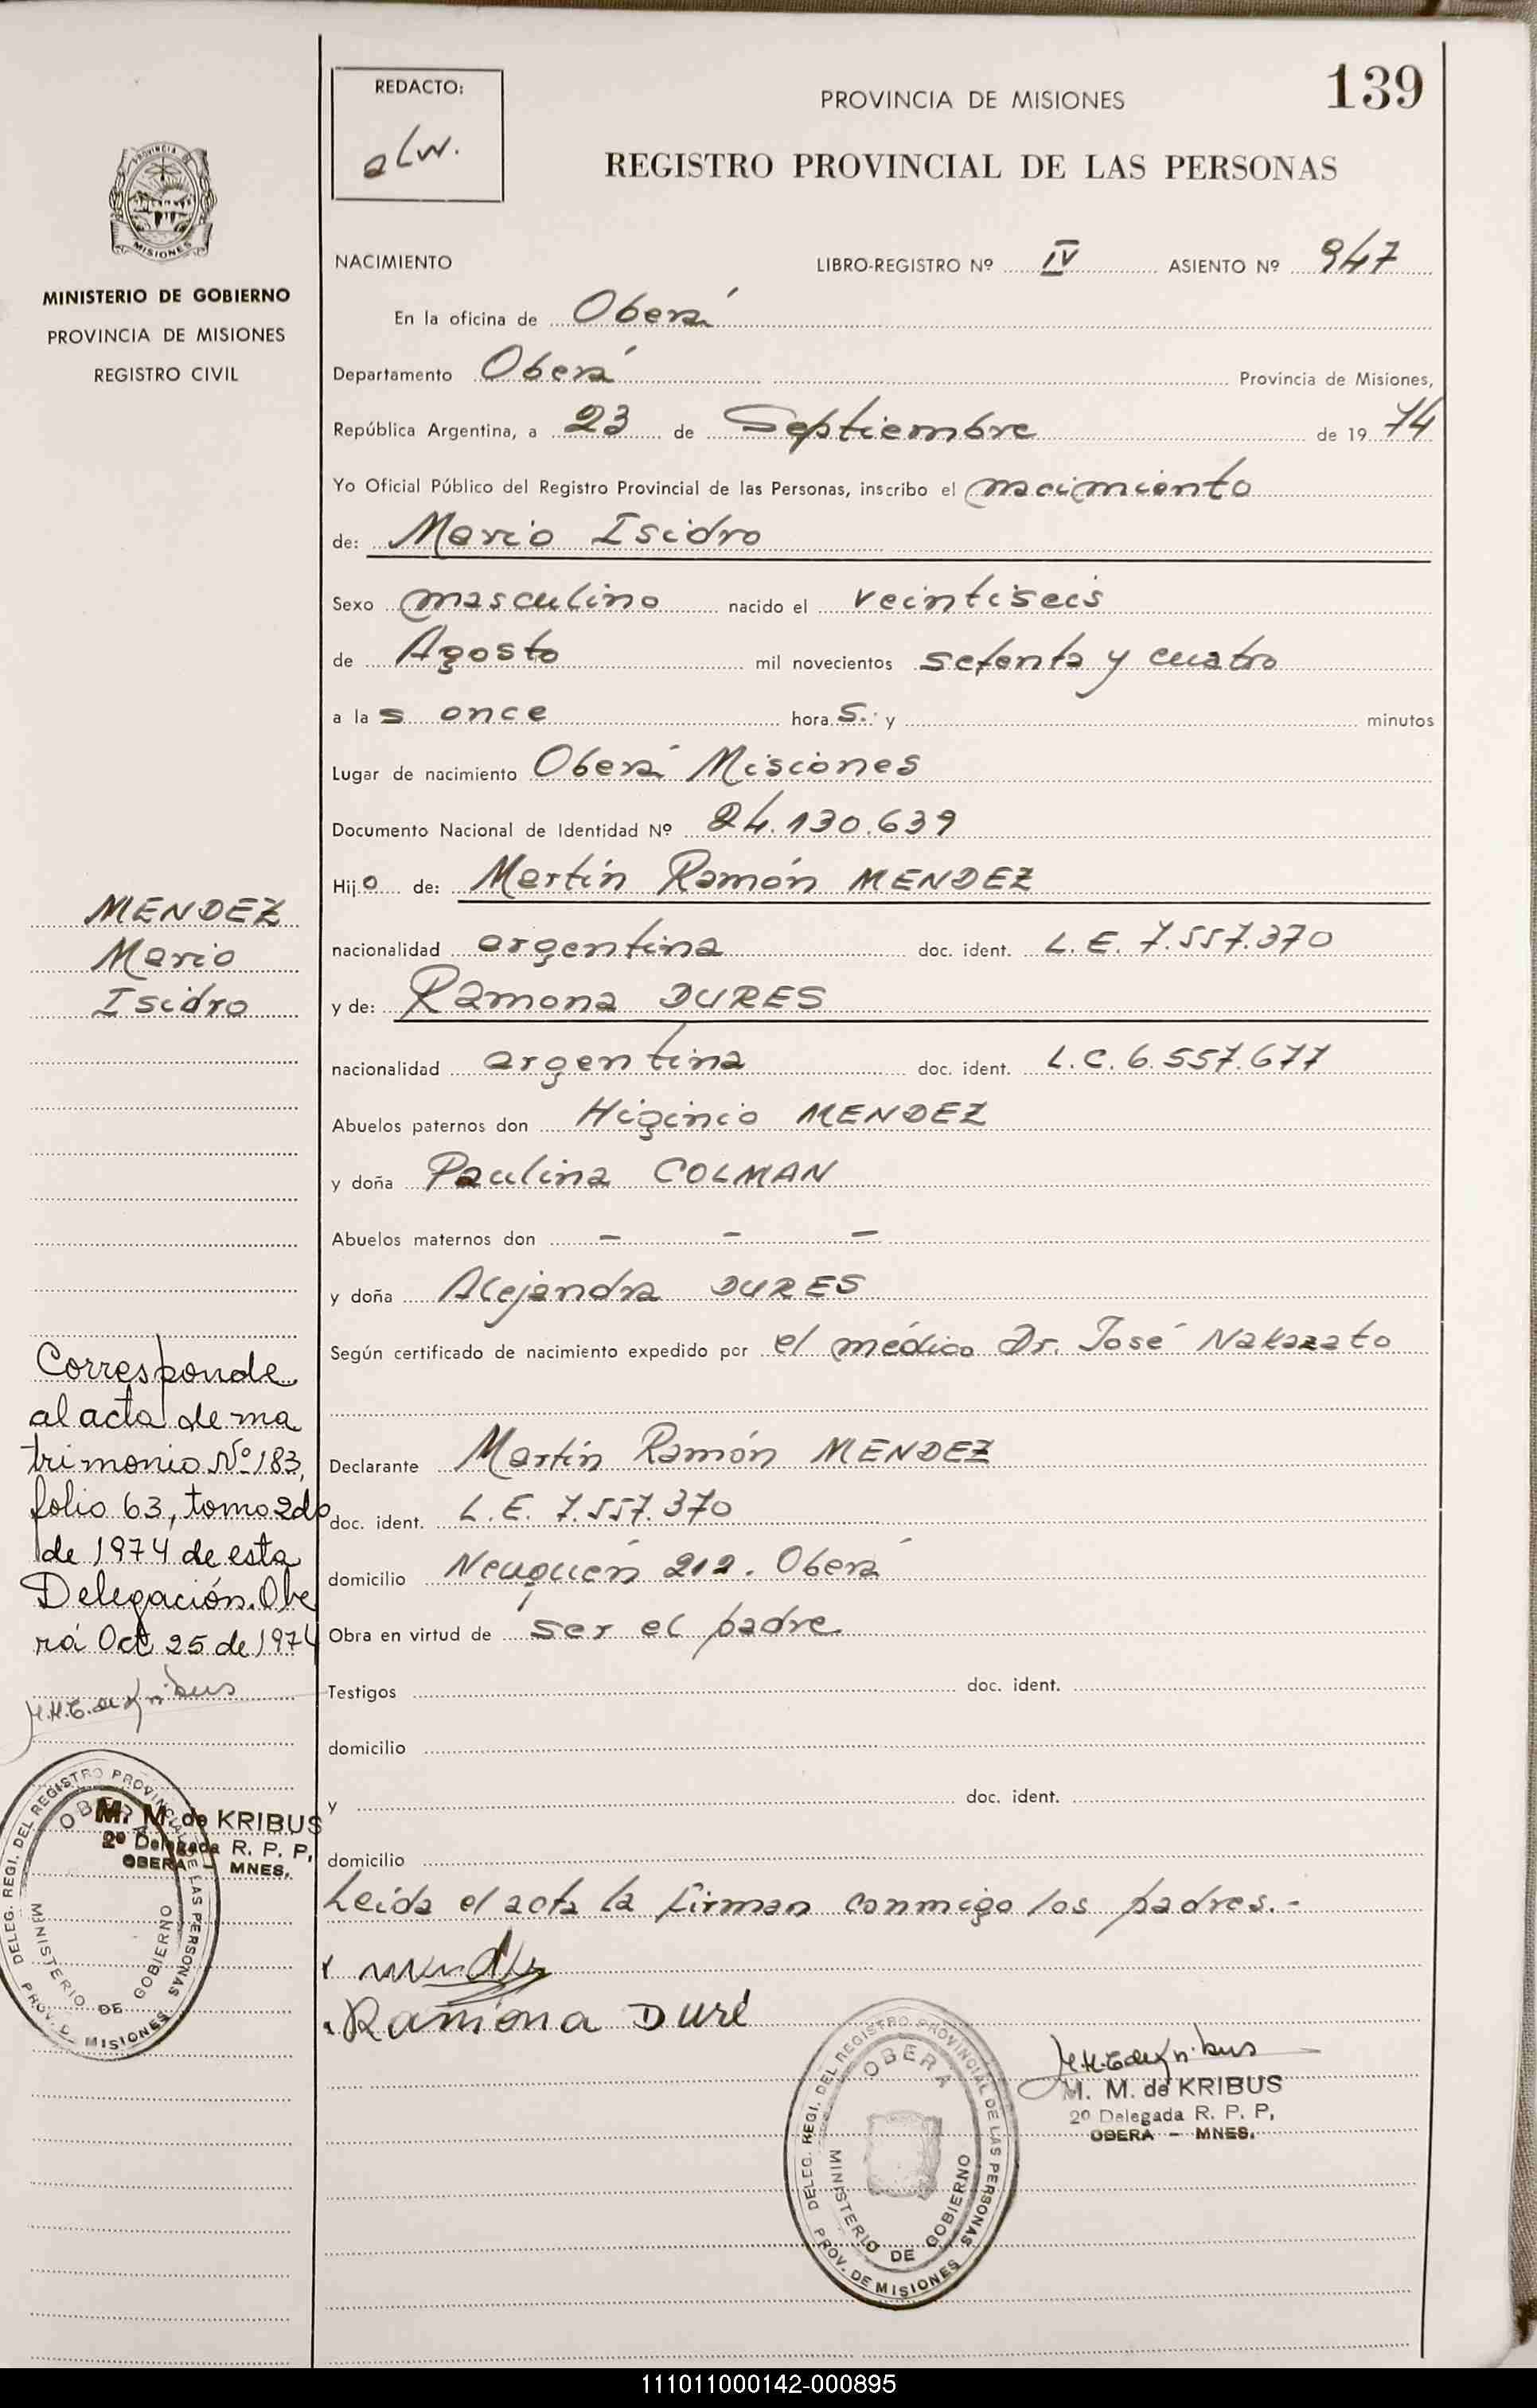 139
REDACTO:
alw.
PROVINCIA DE MISIONES
REGISTRO PROVINCIAL DE LAS PERSONAS
PROVINCIA DE
MISIONES
MINISTERIO DE GOBIERNO
PROVINCIA DE MISIONES
REGISTRO CIVIL
NACIMIENTO LIBRO-REGISTRO Nº IV ASIENTO Nº 947
En la oficina de Oberá
Departamento Oberá Provincia de Misiones,
República Argentina, a 23 de Septiembre de 19 74
Yo Oficial Público del Registro Provincial de las Personas, inscribo el nacimiento
de: Mario Isidro
Sexo masculino nacido el veintiseis
de Agosto mil novecientos setenta y cuatro
a las once horas. y minutos
Lugar de nacimiento Oberá Misiones
Documento Nacional de Identidad Nº 24.130.639
Hijo de: Martín Ramón MENDEZ
nacionalidad argentina doc. ident. L.E. 7.557.370
y de: Ramona DURES
nacionalidad argentina doc. ident. L.C. 6.557.677
Abuelos paternos don Higinio MENDEZ
y doña Paulina COLMAN
Abuelos maternos don – – –
y doña Alejandra DURES
Según certificado de nacimiento expedido por el médico Dr. José Nakazato
Declarante Martín Ramón MENDEZ
doc. ident. L.E. 7.557.370
domicilio Neuquén 212. Oberá
Obra en virtud de ser el padre
Testigos doc. ident.
domicilio
y doc. ident.
domicilio
Leida el acta la firman conmigo los padres.-
Ramona Duré
M. M. de KRIBUS
2º Delegada R. P. P,
OBERA – MNES.
DELEG. REGI. DEL REGISTRO PROVINCIAL DE LAS PERSONAS
OBERA
MINISTERIO DE GOBIERNO
PROV. DE MISIONES
MENDEZ
Mario
Isidro
Corresponde
al acta de ma
trimonio Nº 183,
folio 63, tomo 2do
de 1974 de esta
Delegación. Obe
rá Oct 25 de 1974
M. M. de KRIBUS
2º Delegada R. P. P,
OBERA – MNES.
DELEG. REGI. DEL REGISTRO PROVINCIAL DE LAS PERSONAS
OBERA
MINISTERIO DE GOBIERNO
PROV. D. MISIONES
111011000142-000895